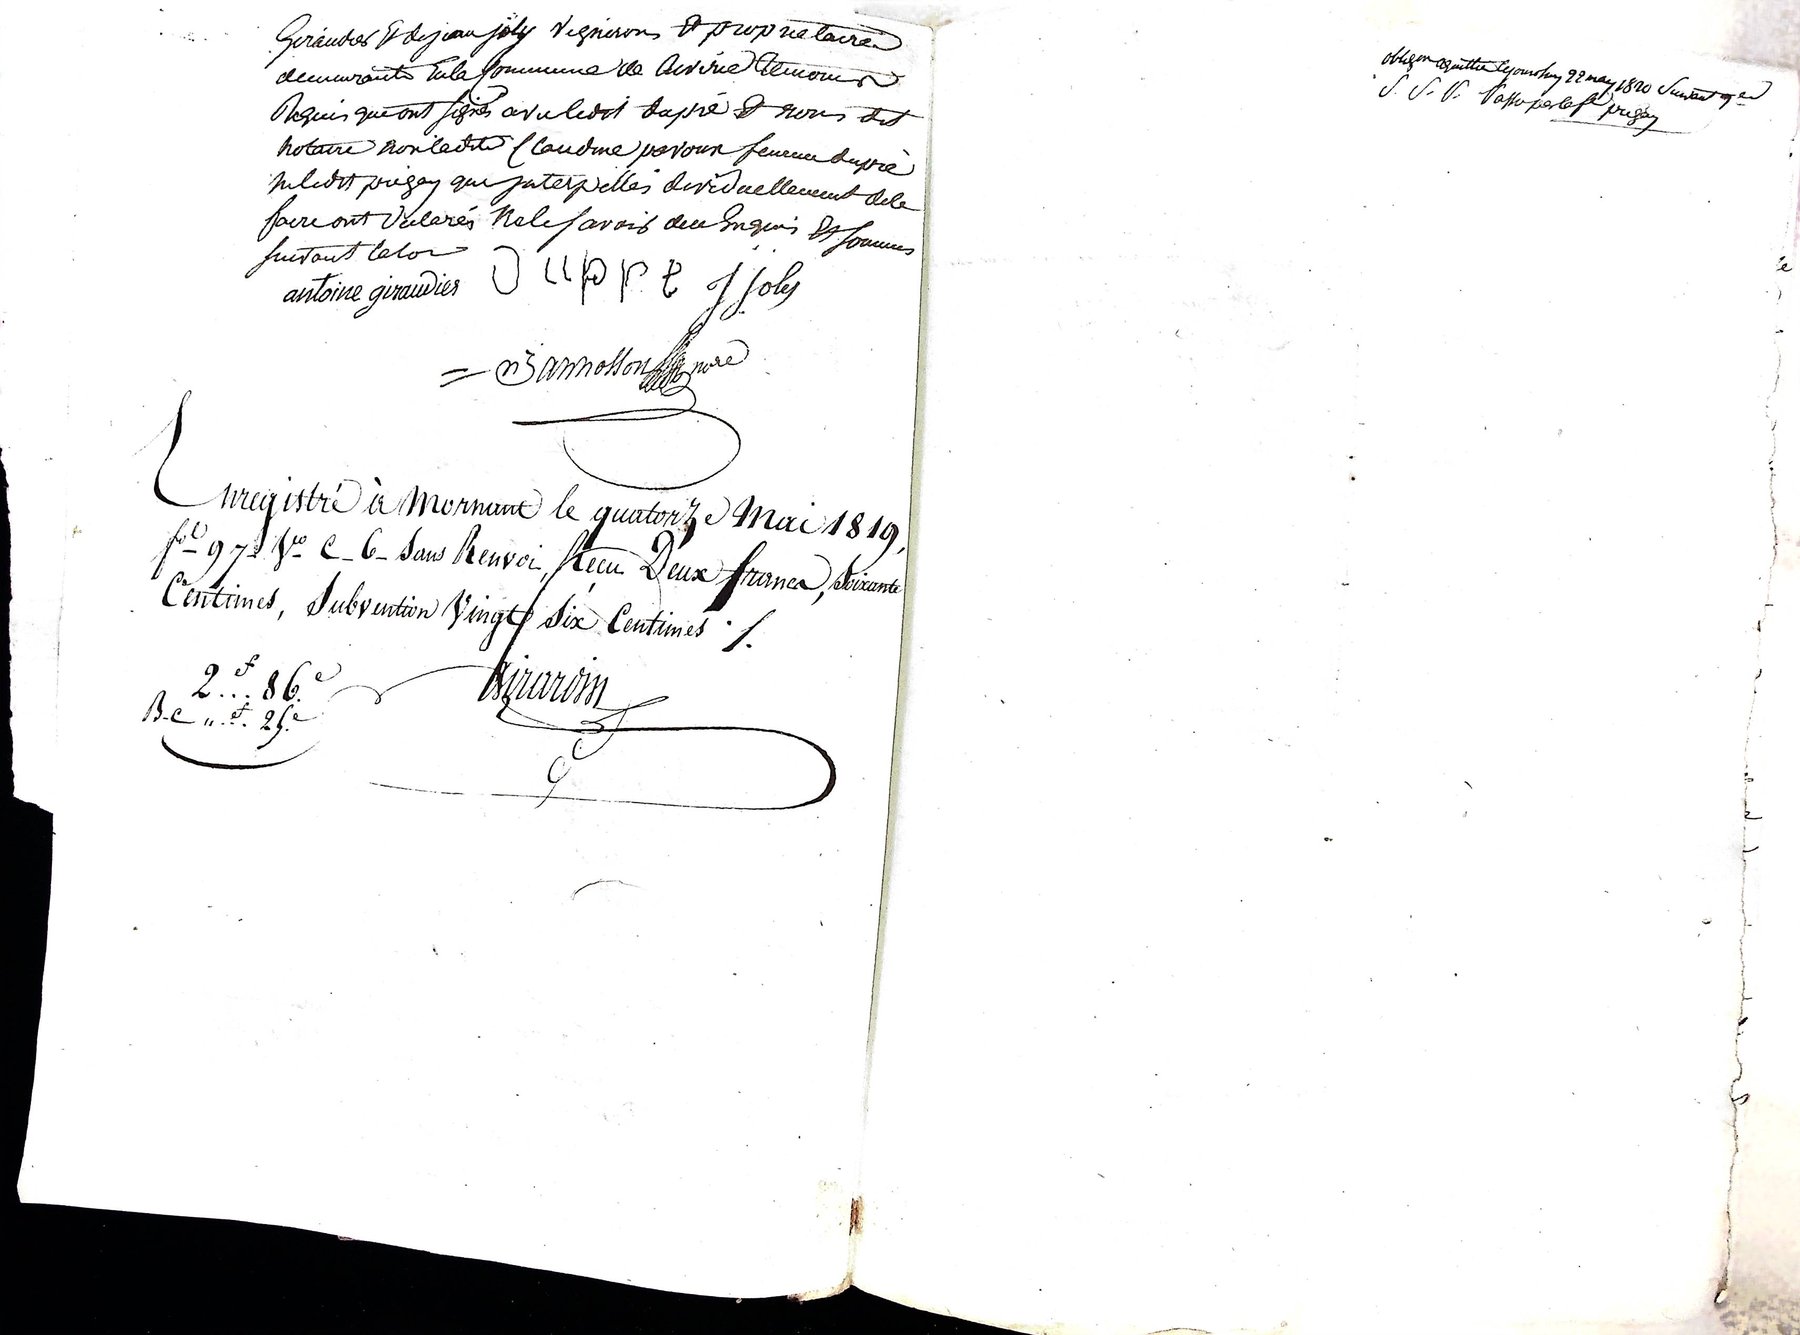 Giraudier Et de jean joly vignerons Et proprietaires
demeurants En la Commune de Temoins
Requis qui ont signés avec ledit dupré Et nous dit
Notaire non ladite Claudine pavoux femme dupré
ni ledit prigay que interpellés dividuellement de le
faire ont déclarés Ne le savoir de ce Enquis Et sommés
suivant la loi
antoine giraudier Duppre J joly
nore
Enregistré à Mornant le quatorze Mai 1819,
fo 97 Vo C 6 Sans Renvoi, Reçu Deux francs, Soixante
Centimes, Subvention Vingt Six Centimes ./.
2f... 86c
B.C "f. 25c
Girardin
22 may 1820 Suivant
S. S. P. prigay